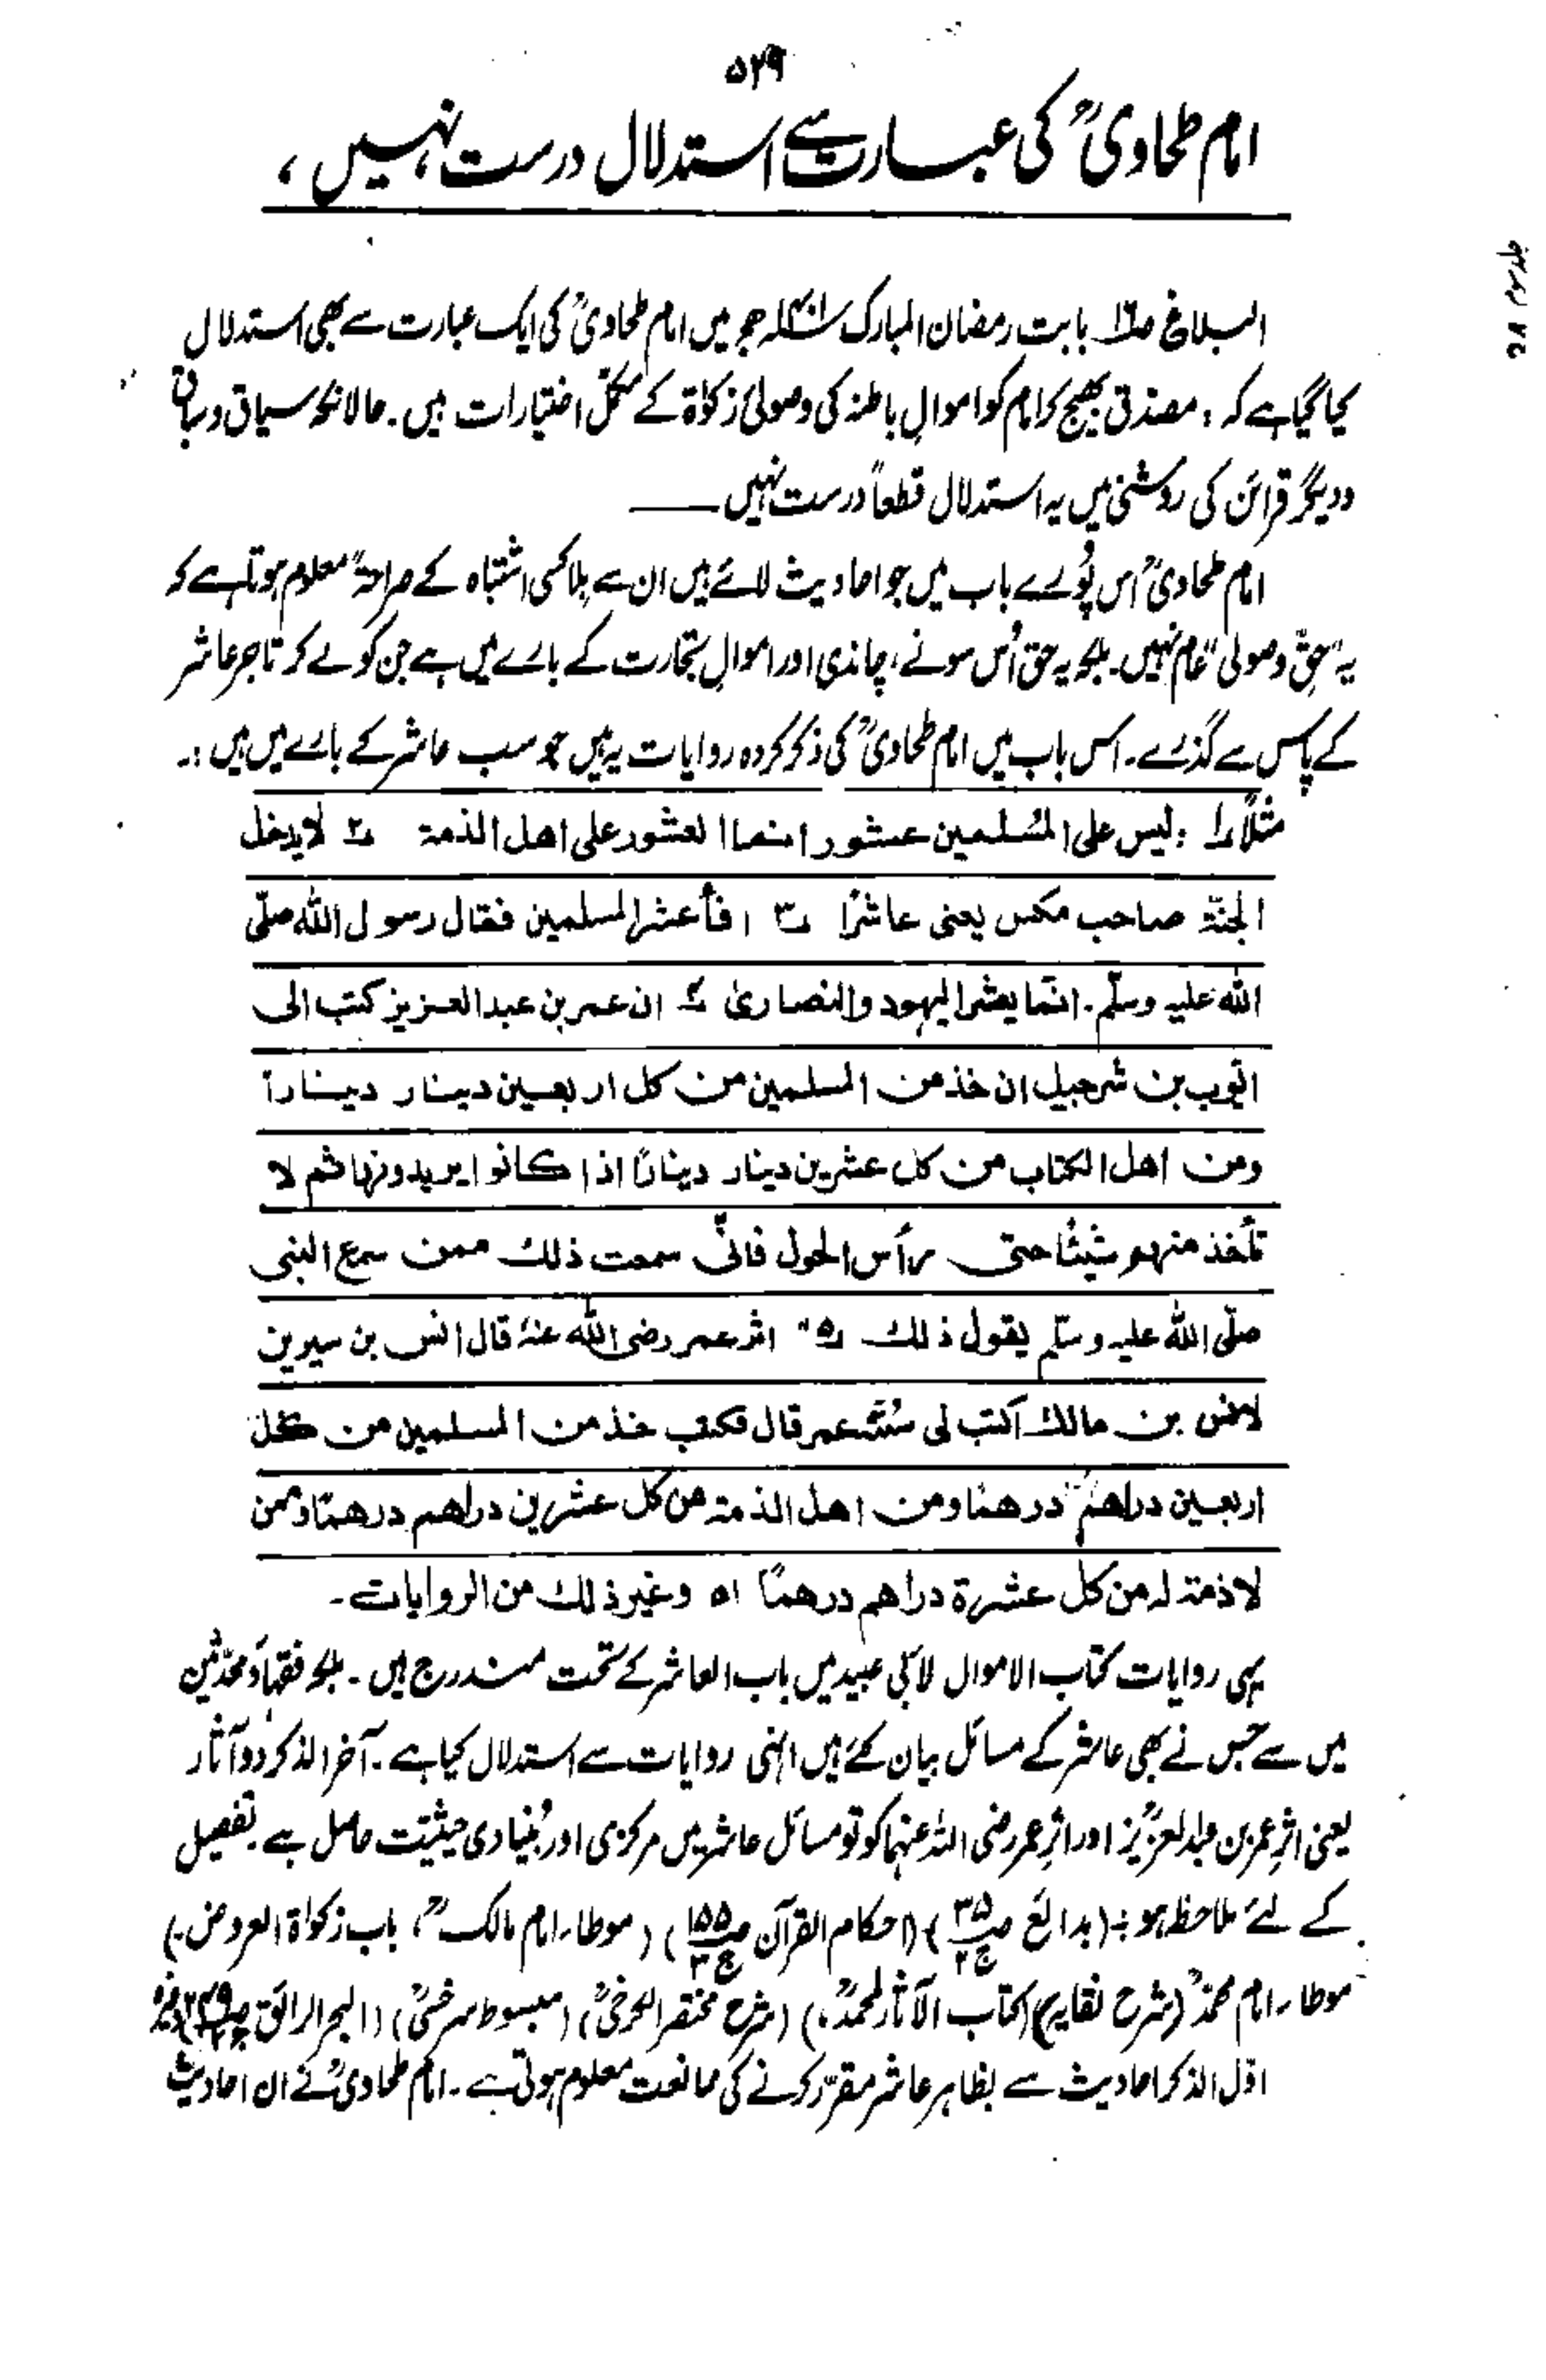 ۵۲۹
امام طحاویؒ کی عبارت سے استدلال درست نہیں،
جلد سوم
البلاغ بابت رمضان المبارک ۱۴۰۱ھ جو میں امام طحاویؒ کی ایک عبارت سے بھی استدلال
کیا گیا ہے کہ : مصدق بھیج کر امام کو اموالِ باطنہ کی وصولیٔ زکوٰۃ کے مکمّل اختیارات ہیں۔ حالانکہ سیاق و سباق
ودیگر قرائن کی روشنی میں یہ استدلال قطعاً درست نہیں ــــ
امام طحاویؒ اس پُورے باب میں جو احادیث لائے ہیں ان سے بِلا کسی اشتباہ کے صراحۃً معلوم ہوتا ہے کہ
یہ "حقِّ وصولی" عام نہیں۔ بلکہ یہ حق اُس سونے، چاندی اور اموالِ تجارت کے بارے میں ہے جن کو لے کر تاجر عاشر
کے پاس سے گذرے۔ اس باب میں امام طحاویؒ کی ذکر کردہ روایات یہ ہیں جو سب عاشر کے بارے میں ہیں :۔
مثلاً ۱ : لیس علی المُسلمین عشور انما العشور علی اھل الذمۃ ۲ لا یدخل
الجنّۃ صاحب مکس یعنی عاشرًا ۳ افأعشر المسلمین فقال رسول اللہ صلّی
اللہ علیہ وسلّم۔ انّما یعشر الیہود والنصاریٰ ۴ ان عمر بن عبد العزیز کتب الی
ایّوب بن شرحبیل ان خذ من المسلمین من کل اربعین دینار دیناراً
ومن اھل الکتاب من کل عشرین دینار دینارًا اذا کانوا یریدونہا ثم لا
تأخذ منہم شیئًا حتی رأس الحول فانّی سمعت ذلک ممن سمع النبی
صلّی اللہ علیہ وسلّم یقول ذلک ۵ اثر عمر رضی اللہ عنہٗ قال انس بن سیرین
لانس بن مالک اکتب لی سُنّۃ عمر قال فکتب خذ من المسلمین من کل
اربعین دراھم درھمًا ومن اھل الذمۃ من کل عشرین دراھم درھمًا وممن
لا ذمۃ لہ من کل عشرۃ دراھم درھمًا اھ وغیر ذلک من الروایات۔
یہی روایات کتاب الاموال لابی عبید میں باب العاشر کے تحت مندرج ہیں۔ بلکہ فقہاؑ و محدّثین
میں سے جس نے بھی عاشر کے مسائل بیان کئے ہیں انہی روایات سے استدلال کیا ہے۔ آخر الذکر دو آثار
یعنی اثرِ عمر بن عبدالعزیزؒ اور اثرِ عمر رضی اللہ عنہما کو تو مسائل عاشر میں مرکزی اور بُنیادی حیثیّت حاصل ہے۔ تفصیل
کے لئے ملاحظہ ہو : (بدائع ص ۳۵ ج ۲) (احکام القرآن ص ۱۵۵ ج ۳) (موطا۔ امام مالکؒ، باب زکوٰۃ العروض۔)
موطا۔ امام محمدؒ (شرح نقایہ) (کتاب الآثار لمحمدؒ،) (شرح مختصر الکرخیؒ) (مبسوط سرخسیؒ) (البحر الرائق) وغیرہ
اوّل الذکر احادیث سے بظاہر عاشر مقرّر کرنے کی ممانعت معلوم ہوتی ہے۔ امام طحاویؒ نے ان احادیث